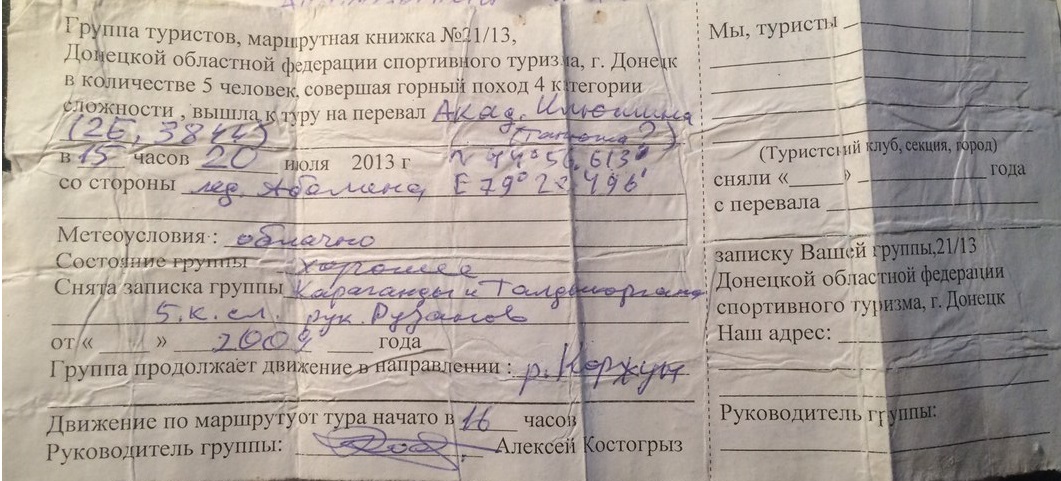 Группа туристов, маршрутная книжка №21/13,
Донецкой областной федерации спортивного туризма, г. Донецк
в количестве 5 человек, совершая горный поход 4 категории
сложности , вышла к туру на перевал Акад. Илюшина
(2Б, 3844)
в 15 часов 20 июля 2013 г N 44°56,613'
со стороны лед. Абалина, E 79°22,496'
Метеоусловия : облачно
Состояние группы хорошее
Снята записка группы Караганды и Талдыкоргана
5.к.сл. рук. Рузанов
от « » 2009 года
Группа продолжает движение в направлении : р. Коржун
Движение по маршруту от тура начато в 16 часов
Руководитель группы: Алексей Костогрыз
Мы, туристы
(Туристский клуб, секция, город)
сняли « » года
с перевала
записку Вашей группы,21/13
Донецкой областной федерации
спортивного туризма, г. Донецк
Наш адрес:
Руководитель группы: